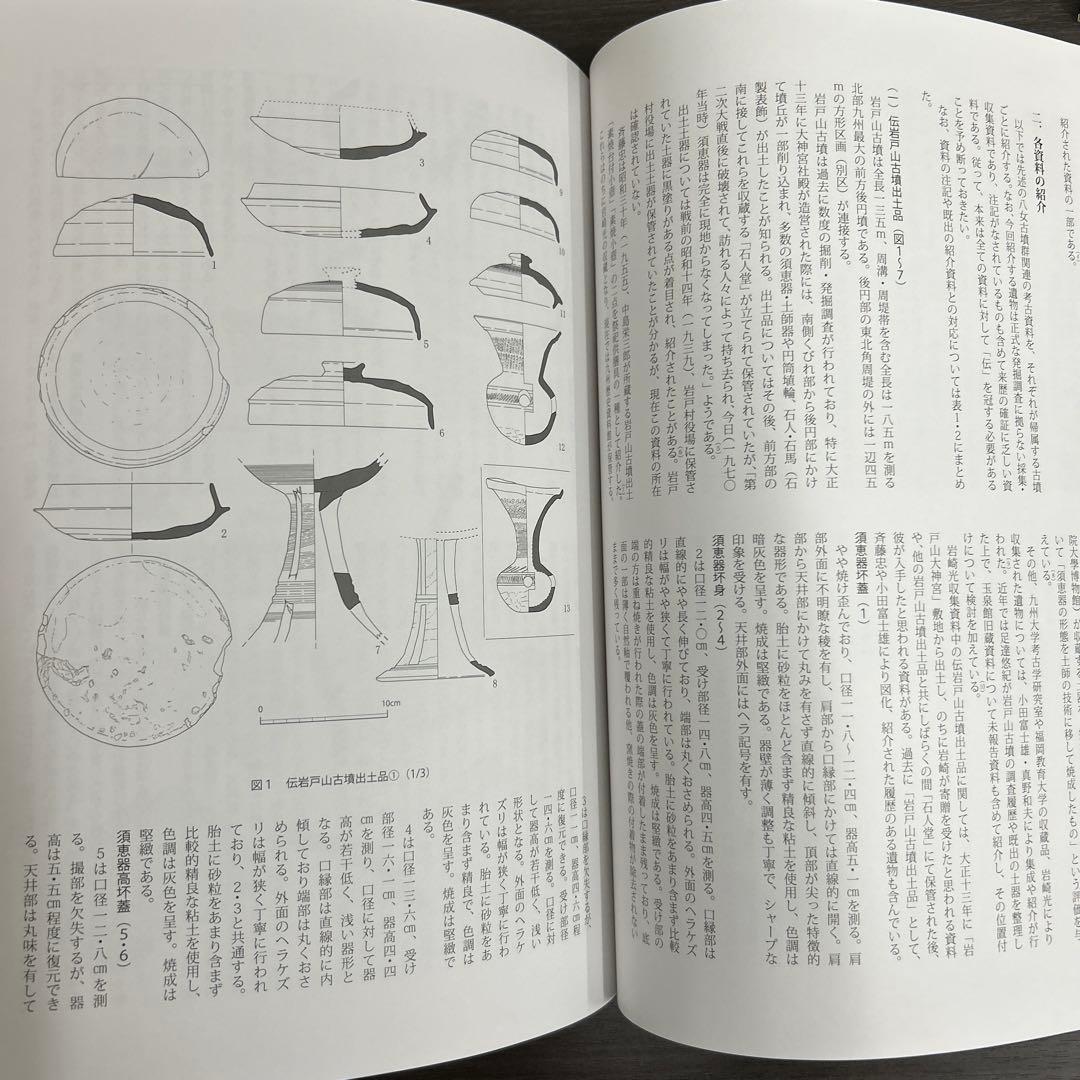 紹介された資料の一部である。
二、各資料の紹介
以下では先述の八女古墳群関連の考古資料を、それぞれが帰属する古墳
ごとに紹介する。なお、今回紹介する遺物は正式な発掘調査に拠らない採集・
収集資料であり、注記がなされているものも含めて来歴の確証に乏しい資
料である。従って、本来は全ての資料に対して「伝」を冠する必要がある
ことを予め断っておきたい。
なお、資料の注記や既出の紹介資料との対応については表1・2にまとめ
た。
(一)伝岩戸山古墳出土品(図1~7)
岩戸山古墳は全長一三五m、周溝・周堤帯を含む全長は一八五mを測る
北部九州最大の前方後円墳である。後円部の東北角周堤の外には一辺四五
mの方形区画(別区)が連接する。
岩戸山古墳は過去に数度の掘削・発掘調査が行われており、特に大正
十三年に大神宮社殿が造営された際には、南側くびれ部から後円部にかけ
て墳丘が一部削り込まれ、多数の須恵器・土師器や円筒埴輪、石人・石馬(石
製表飾)が出土したことが知られる。出土品についてはその後、前方部の
南に接してこれらを収蔵する「石人堂」が立てられて保管されていたが、「第
二次大戦直後に破壊されて、訪れる人々によって持ち去られ、今日(一九七〇
年当時)須恵器は完全に現地からなくなってしまった。」ようである。
出土土器については戦前の昭和十四年(一九三九)、岩戸村役場に保管さ
れていた土器に黒塗りがある点が着目され、紹介されたことがある。岩戸
村役場に出土土器が保管されていたことが分かるが、現在この資料の所在
は確認されていない。
斉藤忠は昭和三十年(一九五五)、中島栄三郎が所蔵する岩戸山古墳出土
院大學博物館)が収蔵する
いて「須恵器の形態を土師の技術に移して焼成したもの」という評価を与
えている。
その他、九州大学考古学研究室や福岡教育大学の収蔵品、岩崎光により
収集された遺物については、小田富士雄・真野和夫により集成や紹介が行
われた。近年では足達悠紀が岩戸山古墳の調査履歴や既出の土器を整理し
た上で、玉泉館旧蔵資料について未報告資料も含めて紹介し、その位置付
けについて検討を加えている。
岩崎光収集資料中の伝岩戸山古墳出土品に関しては、大正十三年に「岩
戸山大神宮」敷地から出土し、のちに岩崎が寄贈を受けたと思われる資料
や、他の岩戸山古墳出土品と共にしばらくの間「石人堂」にて保管された後、
彼が入手したと思われる資料がある。過去に「岩戸山古墳出土品」として、
斉藤忠や小田富士雄により図化、紹介された履歴のある遺物も含んでいる。
須恵器坏蓋(1)
やや焼け歪んでおり、口径一一・八~一二・四㎝、器高五・一㎝を測る。肩
部外面に不明瞭な稜を有し、肩部から口縁部にかけては直線的に開く。肩
部から天井部にかけて丸みを有さず直線的に傾斜し、頂部が尖った特徴的
な器形である。胎土に砂粒をほとんど含まず精良な粘土を使用し、色調は
暗灰色を呈す。焼成は堅緻である。器壁が薄く調整も丁寧で、シャープな
印象を受ける。天井部外面にはヘラ記号を有す。
須恵器坏身(2~4)
2は口径一二・〇㎝、受け部径一四・八㎝、器高四・五㎝を測る。口縁部は
直線的にやや長く伸びており、端部は丸くおさめられる。外面のヘラケズ
リは幅がやや狭くて丁寧に行われている。胎土に砂粒をあまり含まず比較
的精良な粘土を使用し、色調は灰色を呈す。焼成は堅緻である。受け部の
端の方は重ね焼きが行われた際の蓋の端部が付着したまま残っており、底
面の一部は薄く自然釉で覆われる他、窯焼きの際の付着物が除去されない
ままで多く残っている。
1
2
3
4
5
6
7
8
9
10
11
12
13
0
10cm
図1 伝岩戸山古墳出土品①(1/3)
3は口縁部を欠失するが、
一四・六㎝を測る。口径に対
して器高が若干低く、浅い
形状となる。外面のヘラケ
ズリは幅が狭く丁寧に行わ
れている。胎土に砂粒をあ
まり含まず精良で、色調は
灰色を呈す。焼成は堅緻で
ある。
4は口径一三・六㎝、受け
部径一六・一㎝、器高四・四
㎝を測り、口径に対して器
高が若干低く、浅い器形と
なる。口縁部は直線的に内
傾しており端部は丸くおさ
められる。外面のヘラケズ
リは幅が狭く丁寧に行われ
ており、2・3と共通する。
胎土に砂粒をあまり含まず
比較的精良な粘土を使用し、
色調は灰色を呈す。焼成は
堅緻である。
須恵器高坏蓋(5・6)
5は口径一二・八㎝を測
る。撮部を欠失するが、器
高は五・五㎝程度に復元でき
る。天井部は丸味を有して